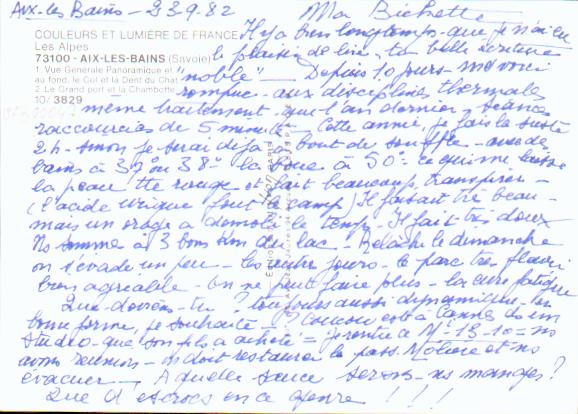 Aix-les Bains - 23.9.82 Ma Bichette
COULEURS ET LUMIÈRE DE FRANCE
Il y a très longtemps que je n'ai eu
Les Alpes
le plaisir de lire ta belle
73100 - AIX-LES-BAINS (Savoie)
1. Vue Générale Panoramique et
au fond, le Col et la Dent du Chat
"noble" - Depuis 10 jours me voici
2. Le Grand port et la Chambotte
rompue aux disciplines thermales
10/3829
même traitement que l'an dernier - séances
raccourcies de 5 minutes - Cette année, je fais la sieste
2h - sinon je serai déjà à bout de souffle - avec des
bains à 37° ou 38° la boue à 50° - ce qui me laisse
la peau tte rouge et fait beaucoup transpirer -
(l'acide urique fout le camp) Il faisait très beau -
mais un orage a démoli le temps - Il fait très doux
Ns sommes à 3 bons km du lac - Relâche le dimanche
on s'évade un peu - les autres jours - le parc très fleuri
bien agréable - On ne peut faire plus - la cure fatigue
Que deviens-tu ? toujours aussi dynamique - en
bonne forme, je souhaite - Coucou est à Cannes ds un
studio que son fils a acheté = je rentre à M 13-10 = ns
avons réunion - on doit restaurer le pass. Molière et ns
évacuer - A quelle sauce serons-ns manger ?
Que d'escrocs en ce genre !!!